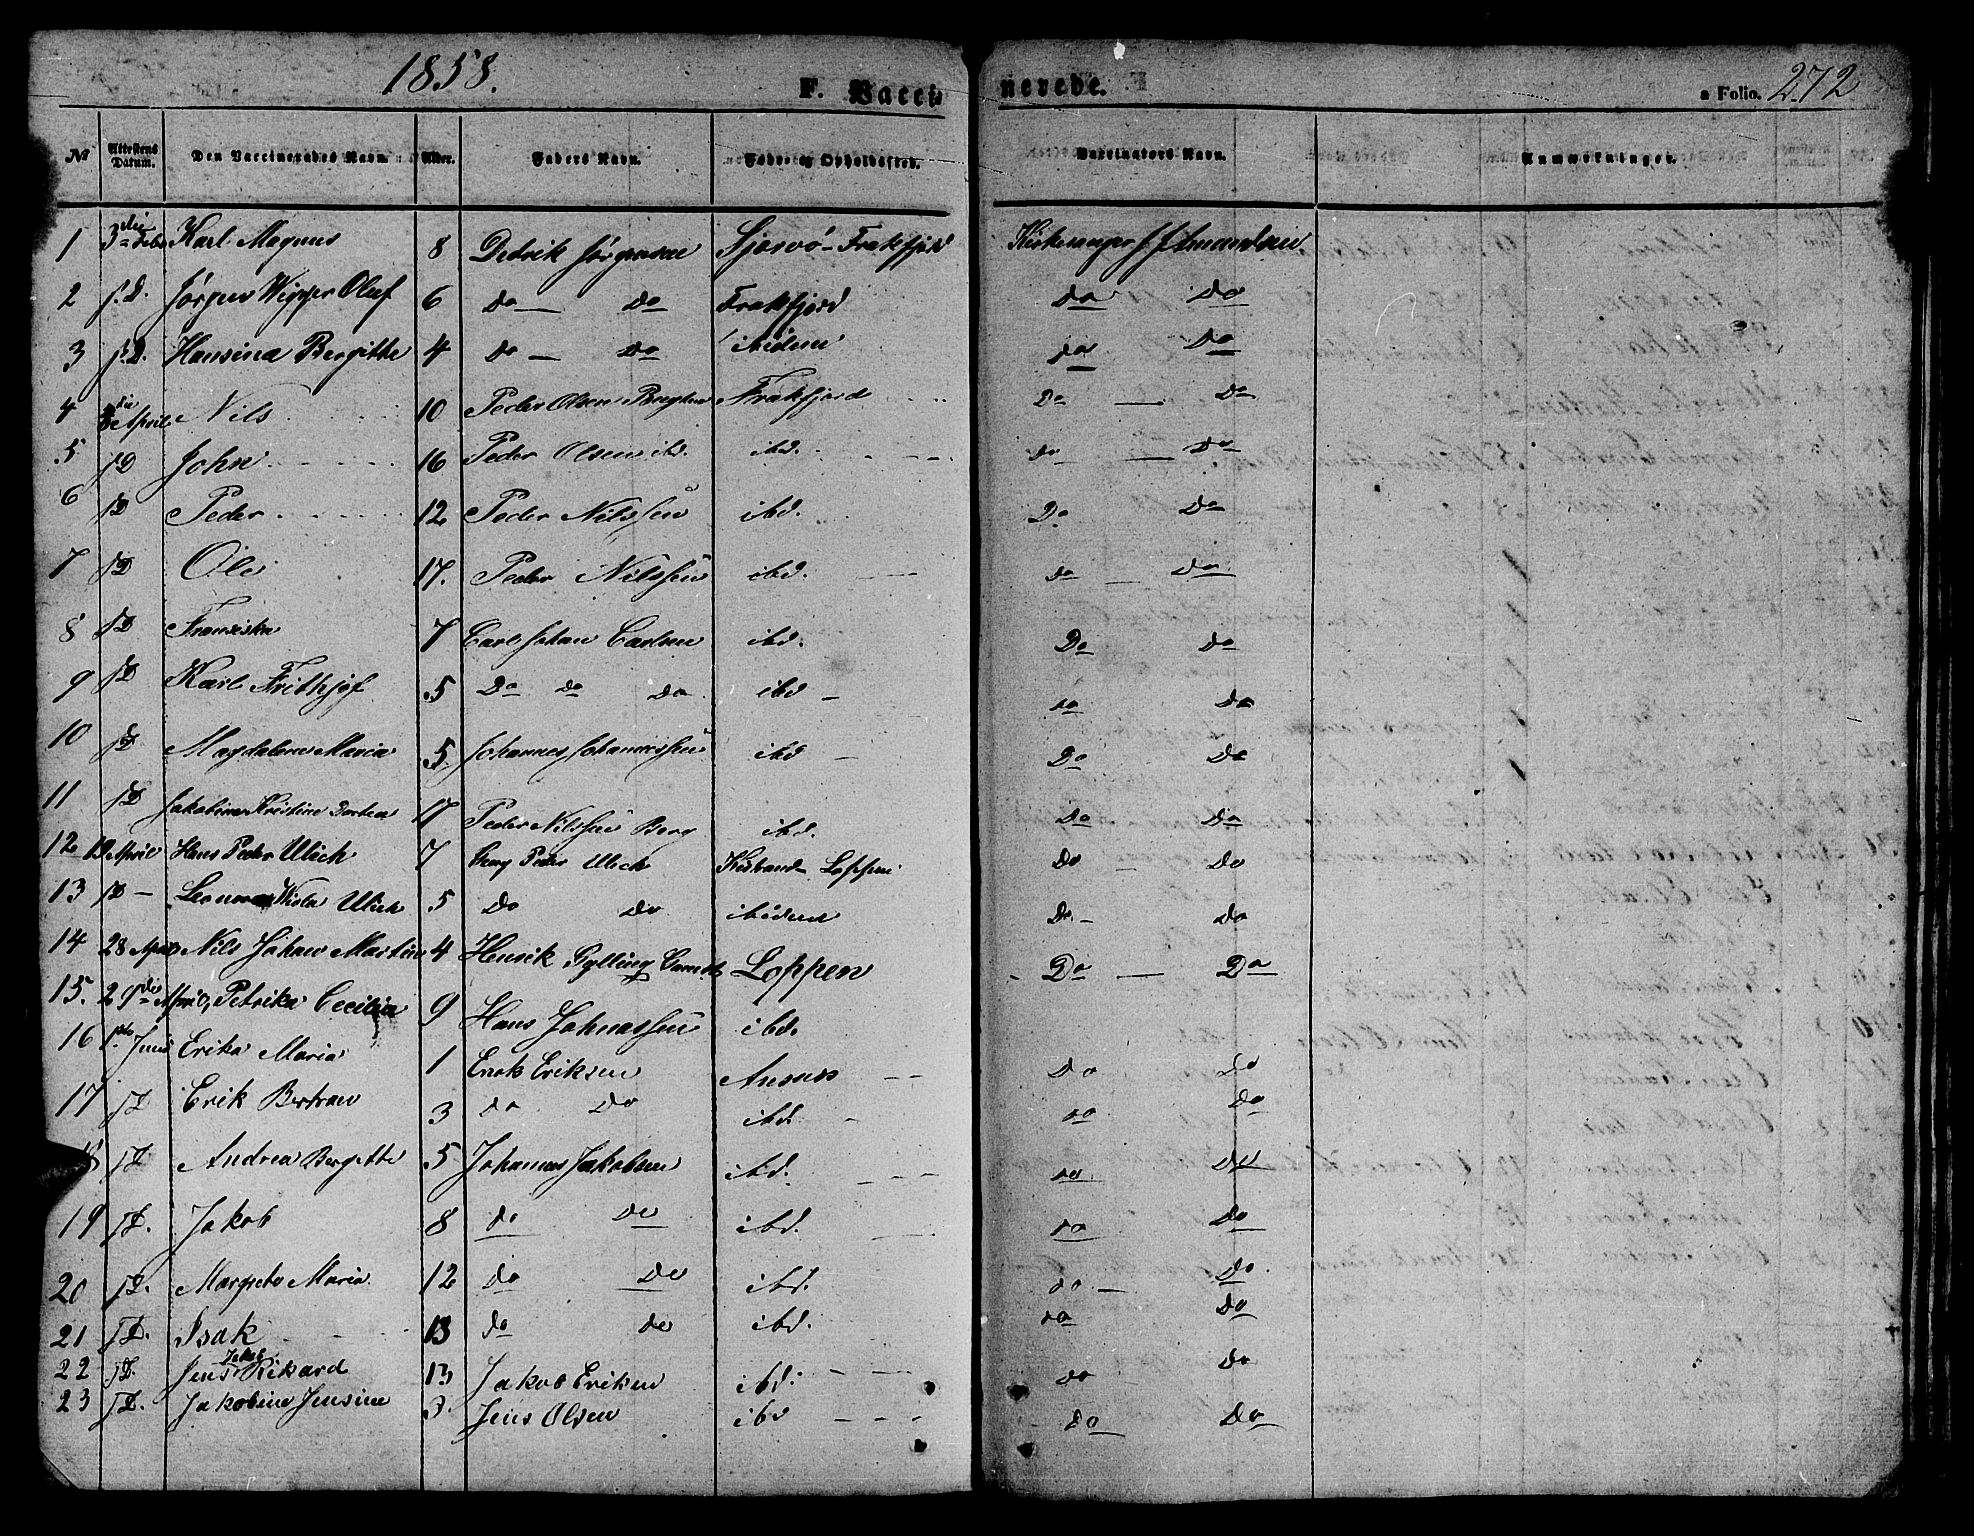 1858. F. Vaccinerede. a Folio. 272
No Attestens Datum. Den Vaccineredes Navn. Alder. Faders Navn. Føde- og Opholdssted. Vaccinators Navn. Anmærkninger.
1 3die Febr Karl Magnus 8 Dedrik Jørgensen Sjørvø - Frakfjord Kirkesanger J J Amundsen
2 s.D. Jørgen Wigger Oluf 6 do do Frakfjord do Do
3 s.D. Hansina Bergitte 4 do do ibidem do Do
4 die April Nils 10 Peder Olsen Frakfjord Do Do
5 s D John 16 Peder Olsen ibd. ibd. do Do
6 s D Peder 12 Peder Nilssen ibd. Do Do
7 s D Ole 17. Peder Nilssen ibd. do Do
8 s D Fransiska 7 Carl Johan Carlsen ibd. Do Do
9 s D Karl Frithjof 5 Do do do ibd do Do
10 s D Magdalena Maria 5. Johannes Johannessen ibd Do Do
11 s D Jakobine Kristine Dortea 17 Peder Nilssen Berg ibd. Do Do
12 19 April Hans Peder Ulich 7 Peder Ulich Loppen Do Do
13 s D Ulich 5 Do Do ibidem Do. Do
14 28 April Nils Johan Martin 4 Henrik Gylling Loppen Do Do
15. 29de April, Petrika Cecilia 9 Hans Johnassen ibd.
16 1ste Juni Erika Maria 1 Erik Eriksen Do Do
17 s D Erik Bertran 3 do Do ibd. do Do
18 s D Andrea Bergitte 5 Johannes Jakobsen ibd. do Do
19 s D. Jakob 8 do do ibd. do Do
20 s D. Margreta Maria 12 do Do ibd. do Do
21 s D. Isak 13 do do ibd. do Do
22 s D. Jens Jakob Rikard 13 Jakob Eriksen ibd. do Do
23 s D. Jakobine Jensine 3. Jens Olsen ibd do Do